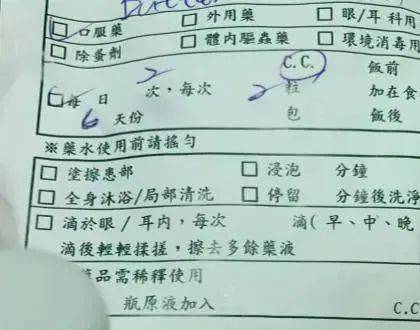 □ 口服藥 □ 外用藥 □ 眼/耳科用
□ 除蚤劑 □ 體內驅蟲藥 □ 環境消毒用
C.C. 飯前
□每 日 2 次，每次 2 粒 加在食
6 天份 包 飯後
※藥水使用前請搖勻
□ 塗擦患部 □ 浸泡 分鐘
□ 全身沐浴/局部清洗 □ 停留 分鐘後洗淨
□ 滴於眼/耳內，每次 滴(早、中、晚
滴後輕輕揉搓，擦去多餘藥液
藥品需稀釋使用
瓶原液加入 C.C